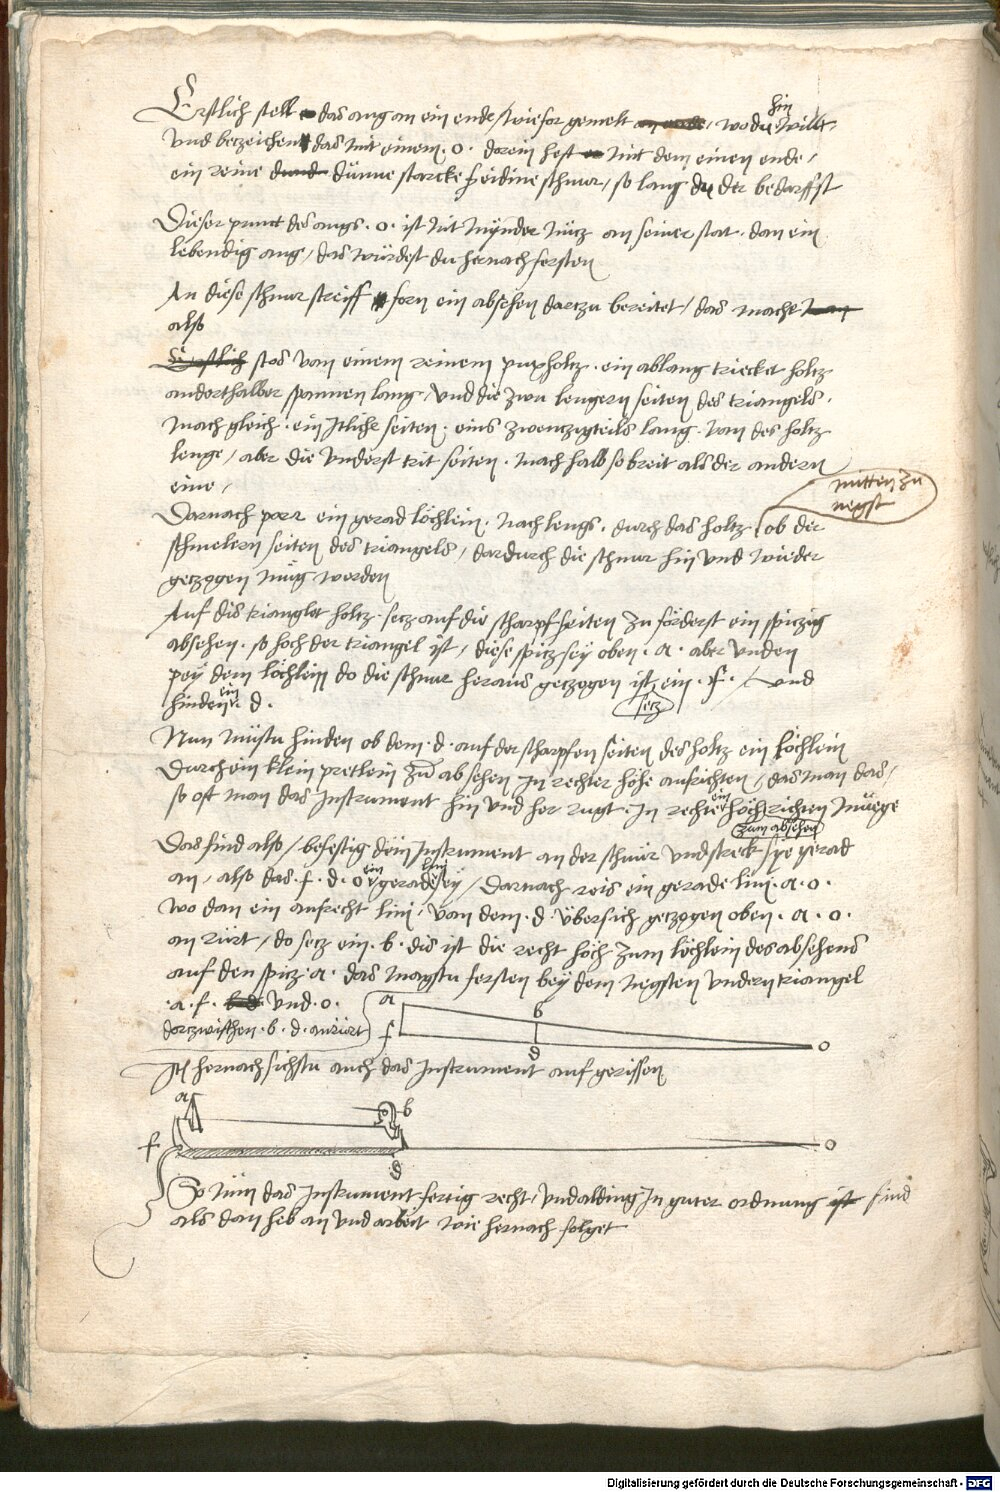 Erstlich stell das aug an ein ende / wie for gemelt wo du hin willt /
vnd betzeichen das mit einem . o . darein heft mit dem einen ende /
ein reine dünne starcke seidine schnur / so lang du der bedarffst
Dieser punct des augs . o . ist nit mÿnder nücz an seiner stat . dan ein
lebendig aug / das würdest du hernach fersten
An diese schnur streiff forn ein absehen dartzu bereitet / das mach
also
stos van einem reinem puxholtz . ein ablang triecket holtz
anderthalber spannen lang / vnd die zwu lengern seiten des triangels .
mach gleich . ein itliche seiten . eins zwentzigteils lang . van des holtz
lenge / aber die vnderst trit seiten . mach halb so breit als der andern
eine /
mitten zu
negst
Darnach porr ein gerad löchlein . nach lengs . durch das holtz / ob der
schmelern seiten des triangels / dardurch die schnur hin vnd wieder
getzogen müg werden
Auf dis trianglet holtz . setz auf die scharpf seiten zu förderst ein spitzig
absehen . so hoch der triangel ist / diese spitz seÿ oben . a . aber vnden
peÿ dem löchlein do die schnur heraus getzogen ist setz ein . f . / vnd
hinden ein . d .
Nun müstu hinden ob dem . d . auf der scharpfen seiten des holtz ein löchlein
durch ein klein pretlein zu absehen in rechter höhe aufrichten / das man das /
so oft man das Instrument hin vnd her rugt . in rechte ein höch richten müege
zum absehen
Das find also / befestig dein Instrument an der schnür vnd streck sÿe gerad
an / also das . f . d . o ein gerade lini seÿ / Darnach reis ein gerade lini . a . o .
wo dan ein aufrecht lini / van dem . d . übersich getzogen oben . a . o .
an rürt / do setz ein . b . dis ist die recht höch zum löchlein des absehens
auf den spitz . a . das magstu fersten beÿ dem negsten vndern triangel
. a . f . vnd . o .
dortzwischen . b . d . anrürt
a
b
f
d
o
Itm hernach sichstu auch das Instrument auf gerissen
a
b
f
d
o
So nün das Instrument fertig recht / vnd alding in guter ordnung sind
als dan heb an vnd arbeit wie hernach folget
Digitalisierung gefördert durch die Deutsche Forschungsgemeinschaft - DFG